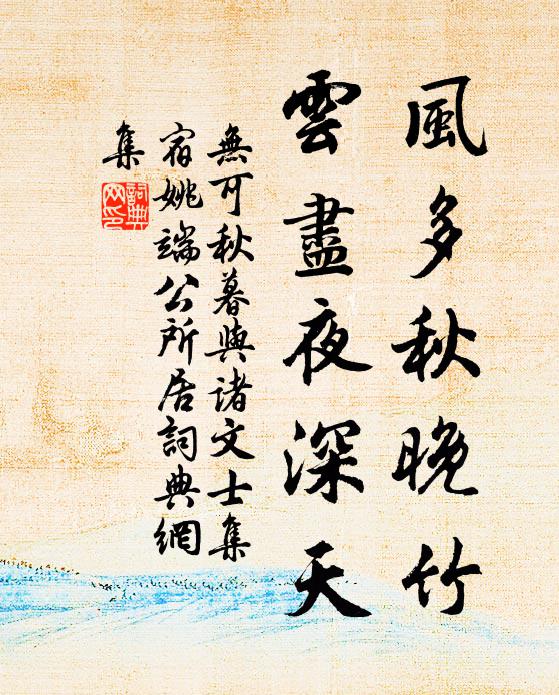 風多秋晚竹
雲盡夜深天
無可秋暮與諸文士集
宿姚端公所居詞典網
集
詞典
网印